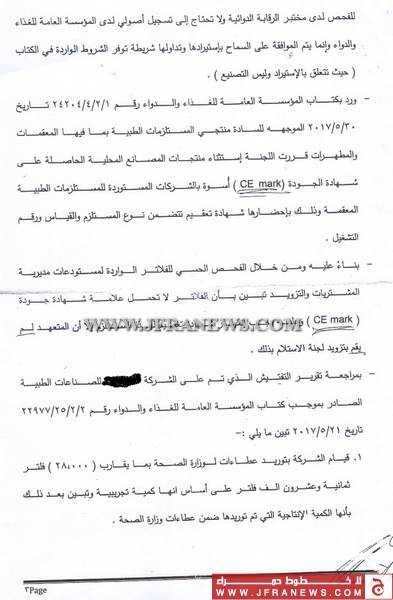 للفحص لدى مختبر الرقابة الدوائية ولا تحتاج إلى تسجيل أصولي لدى المؤسسة العامة للغذاء
والدواء وإنما يتم الموافقة على السماح بإستيرادها وتداولها شريطة توفر الشروط الواردة في الكتاب
( حيث تتعلق بالإستيراد وليس التصنيع ) .
- ورد بكتاب المؤسسة العامة للغذاء والدواء رقم ٢٤٢٠٤/٤/٢/١ تاريخ
٢٠١٧/٥/٣٠ الموجهه للسادة منتجي المستلزمات الطبية بما فيها المعقمات
والمطهرات قررت اللجنة إستثناء منتجات المصانع المحلية الحاصلة على
شهادة الجودة (CE mark) أسوة بالشركات المستوردة للمستلزمات الطبية
المعقمة وذلك بإحضارها شهادة تعقيم تتضمن نوع المستلزم والقياس ورقم
التشغيل .
- بناءً عليه ومن خلال الفحص الحسي للفلاتر الواردة لمستودعات مديرية
المشتريات والتزويد تبين بأن الفلاتر لا تحمل علامة شهادة جودة
( CE mark ) إلا أن المتعهد لم
يقم بتزويد لجنة الاستلام بذلك .
WWW.JFRANEWS.COM
- بمراجعة تقرير التفتيش الذي تم على الشركة للصناعات الطبية
الصادر بموجب كتاب المؤسسة العامة للغذاء والدواء رقم ٢٢٩٧٧/٢٥/٢/٢
تاريخ ٢٠١٧/٥/٢١ تبين ما يلي :-
١. قيام الشركة بتوريد عطاءات لوزارة الصحة بما يقارب ( ٢٨،٠٠٠ ) فلتر
ثمانية وعشرون الف فلتر على أساس انها كمية تجريبية وتبين بعد ذلك
بأنها الكمية الإنتاجية التي تم توريدها ضمن عطاءات وزارة الصحة .
٣Page
لا خطوط حمراء
WWW.JFRANEWS.COM